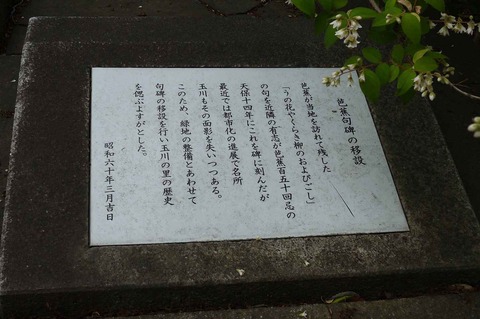 芭蕉句碑の移設
芭蕉が当地を訪れて残した
「うの花やくらき柳のおよびごし」
の句を近隣の有志が芭蕉百五十回忌の
天保十四年にこれを碑に刻んだが
最近では都市化の進展で名所
玉川もその面影を失いつつある。
このため、緑地の整備とあわせて
句碑の移設を行い玉川の里の歴史
を偲ぶよすがとした。
昭和六十年三月吉日